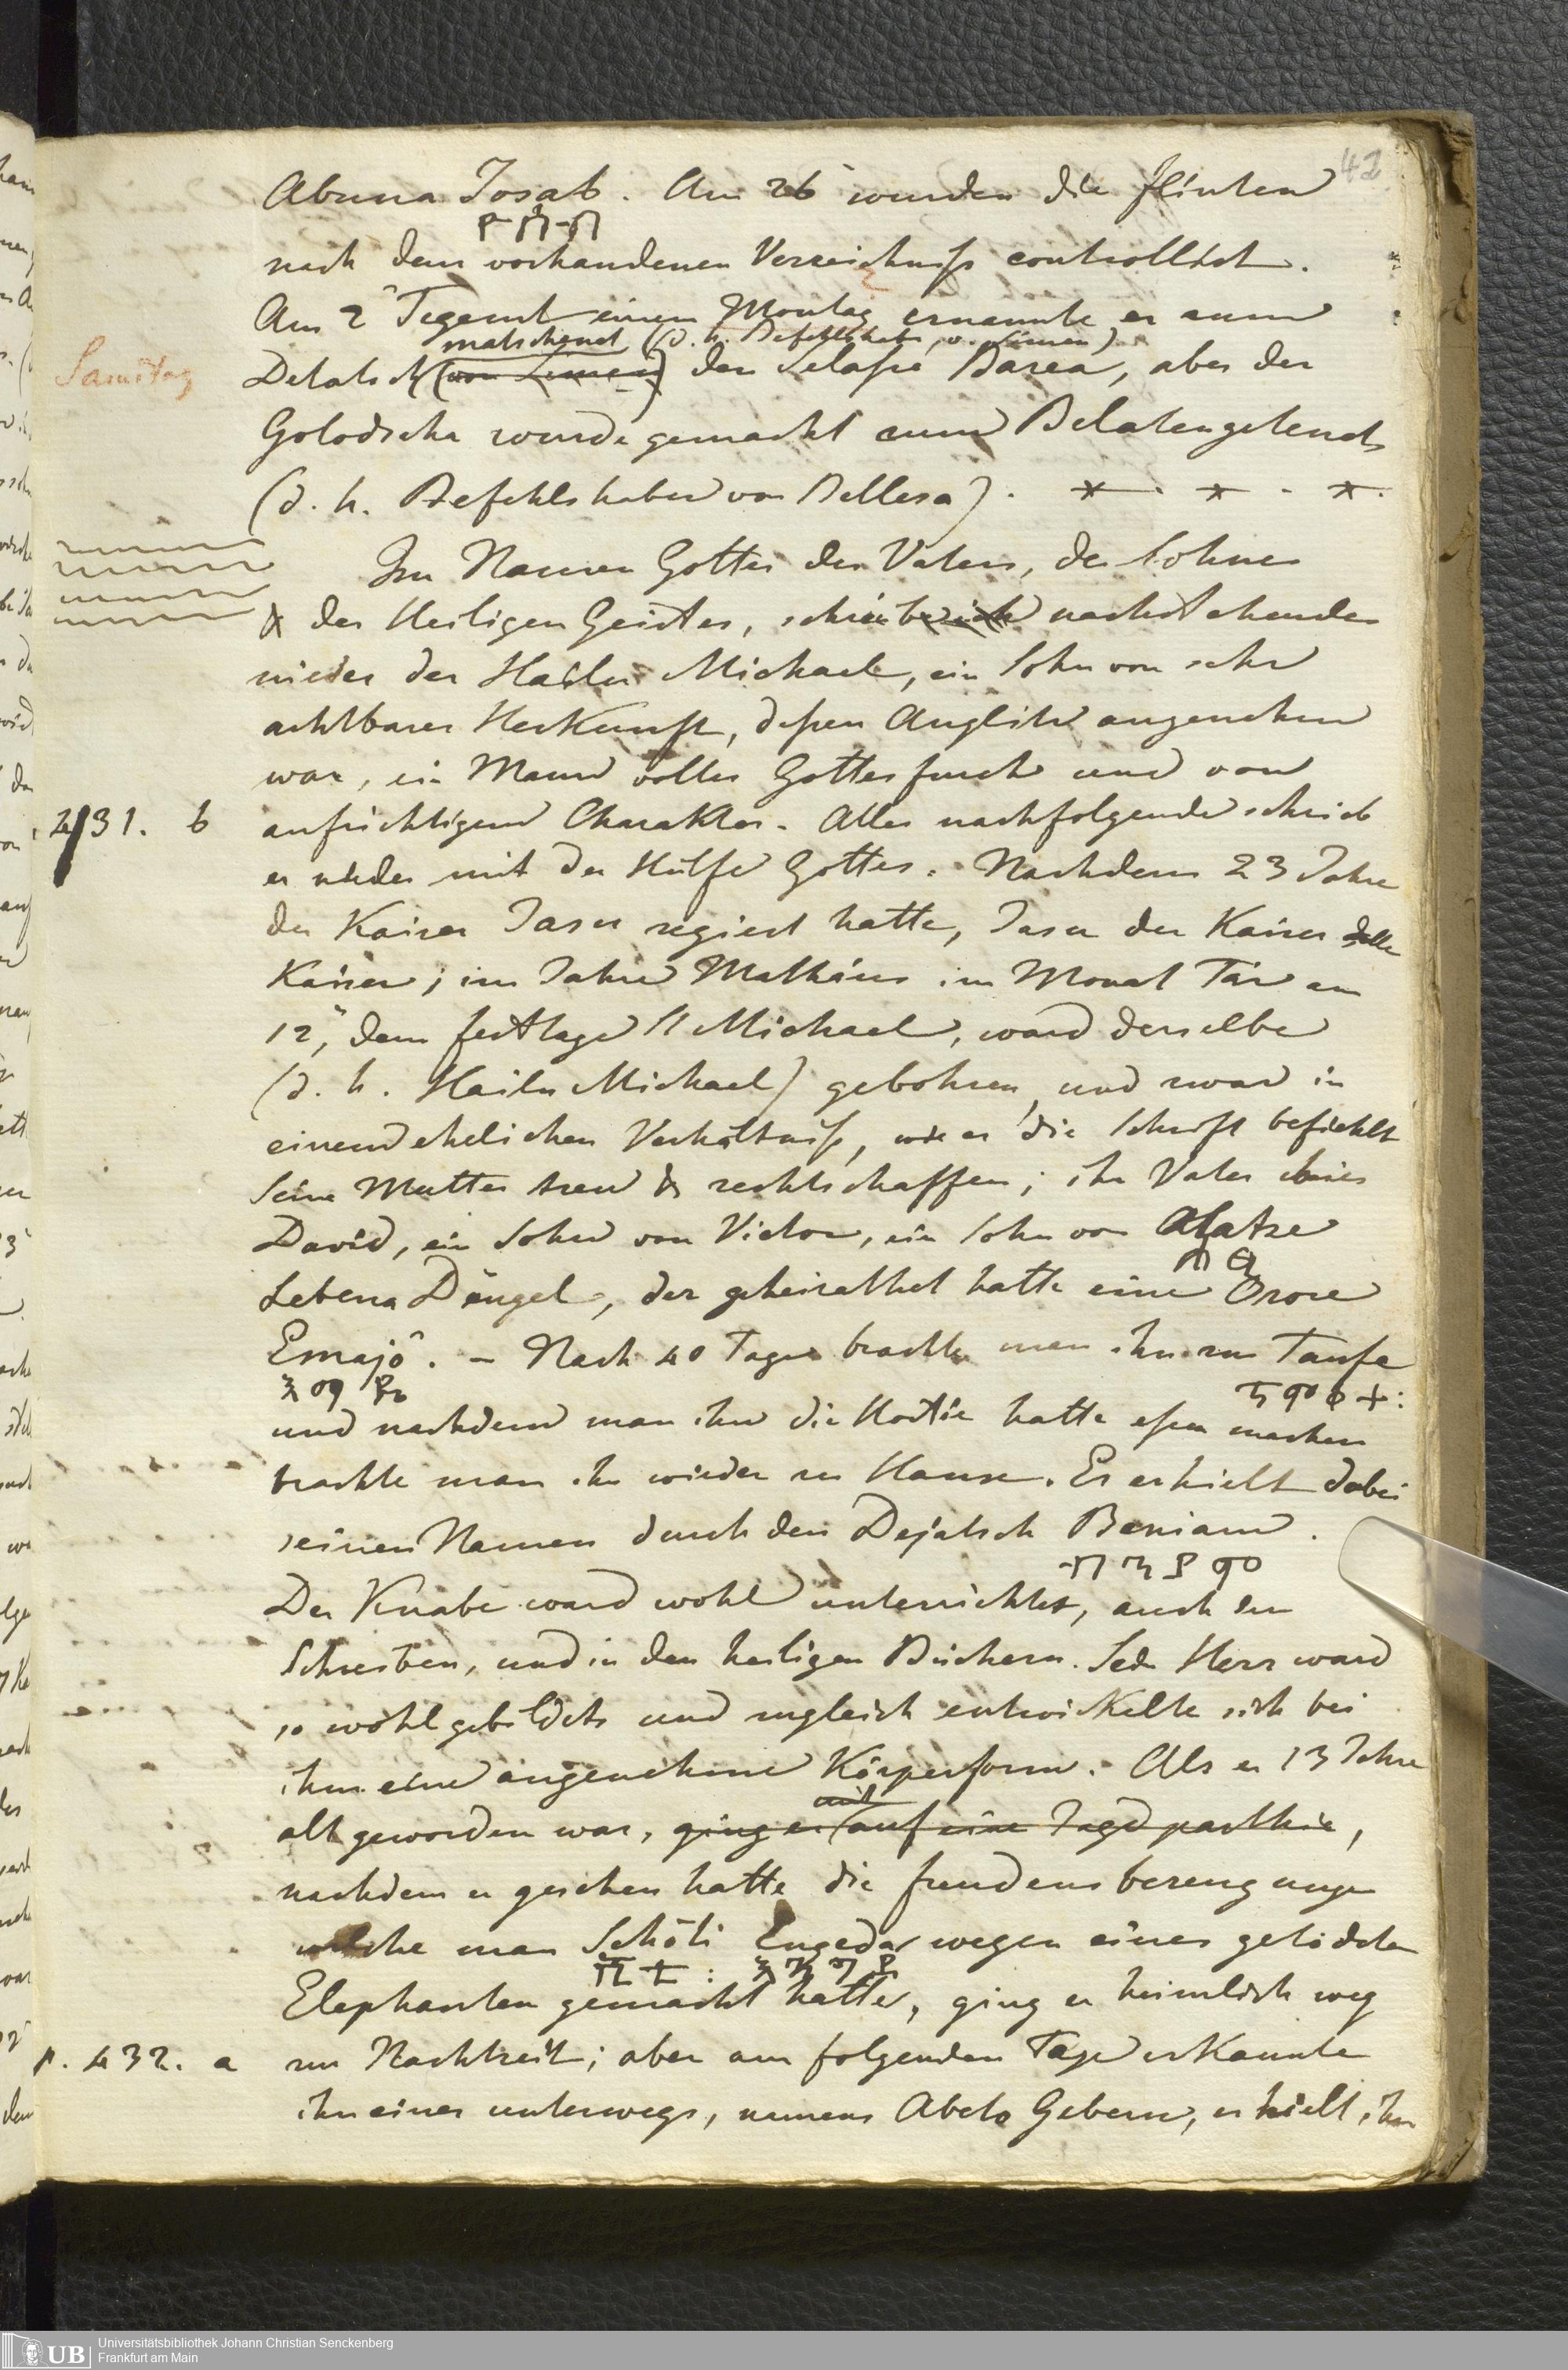 42
Abuna Josab. Am 26 wurden die Flinten
nach dem vorhandenen Verzeichniss controllirt.
Am 2" Tegemt einem Montag ernannte er zum
matschenet (d. h. Befehlshaber v.
Samstag
den Selasse Barea, aber der
Golodscha wurde gemacht zum Belatengetench
(d. h. Befehlshaber von Bellesa). * . * . *.
Im Namen Gottes des Vaters, des Sohnes
& des Heiligen Geistes, schrieb ich nachstehendes
nieder der Hailu Michael, ein Sohn von sehr
achtbarer Herkunft, dessen Anglitz angenehm
war, ein Mann voller Gottesfurcht und von
431. b
aufrichtigem Charakter. Alles nachfolgende schrieb
er nieder mit der Hülfe Gottes. Nachdem 23 Jahre
der Kaiser Jasu regiert hatte, Jasu der Kaiser aller
Kaiser; im Jahre Mathäus im Monat Tär am
12", dem Festtage St Michael, ward derselbe
(d. h. Hailu Michael) gebohren, und zwar in
einem ehelichen Verhältniss, wie es die Schrift befiehlt
Seine Mutter treu & rechtschaffen; ihr Vater
David, ein Sohn von Victor, ein Sohn von
Lebena Dengel, der geheirathet hatte eine Osoro
Emajô. – Nach 40 Tagen brachte man ihn zur Taufe
und nachdem man ihn die Hostie hatte essen machen
brachte man ihn wieder zu Hause. Er erhielt dabei
seinen Namen durch den Dejatsch Beniam.
Der Knabe ward wohl unterrichtet, auch im
Schreiben, und in den heiligen Büchern. Sein Herz ward
so wohl gebildet und zugleich entwickelte sich bei
ihm eine angenehme Körperform. Als er 13 Jahre
alt geworden war, ging er auf eine Jagdparthie,
nachdem er gesehen hatte die Freudensbezeugungen
welche man Schöti Engeda wegen eines getödteten
Elephanten gemacht hatte, ging er heimlich weg
p. 432. a
zur Nachtzeit; aber am folgenden Tage erkannte
ihn einer unterwegs, namens Abeto Gebern, er hielt ihn
UB Universitätsbibliothek Johann Christian Senckenberg
Frankfurt am Main